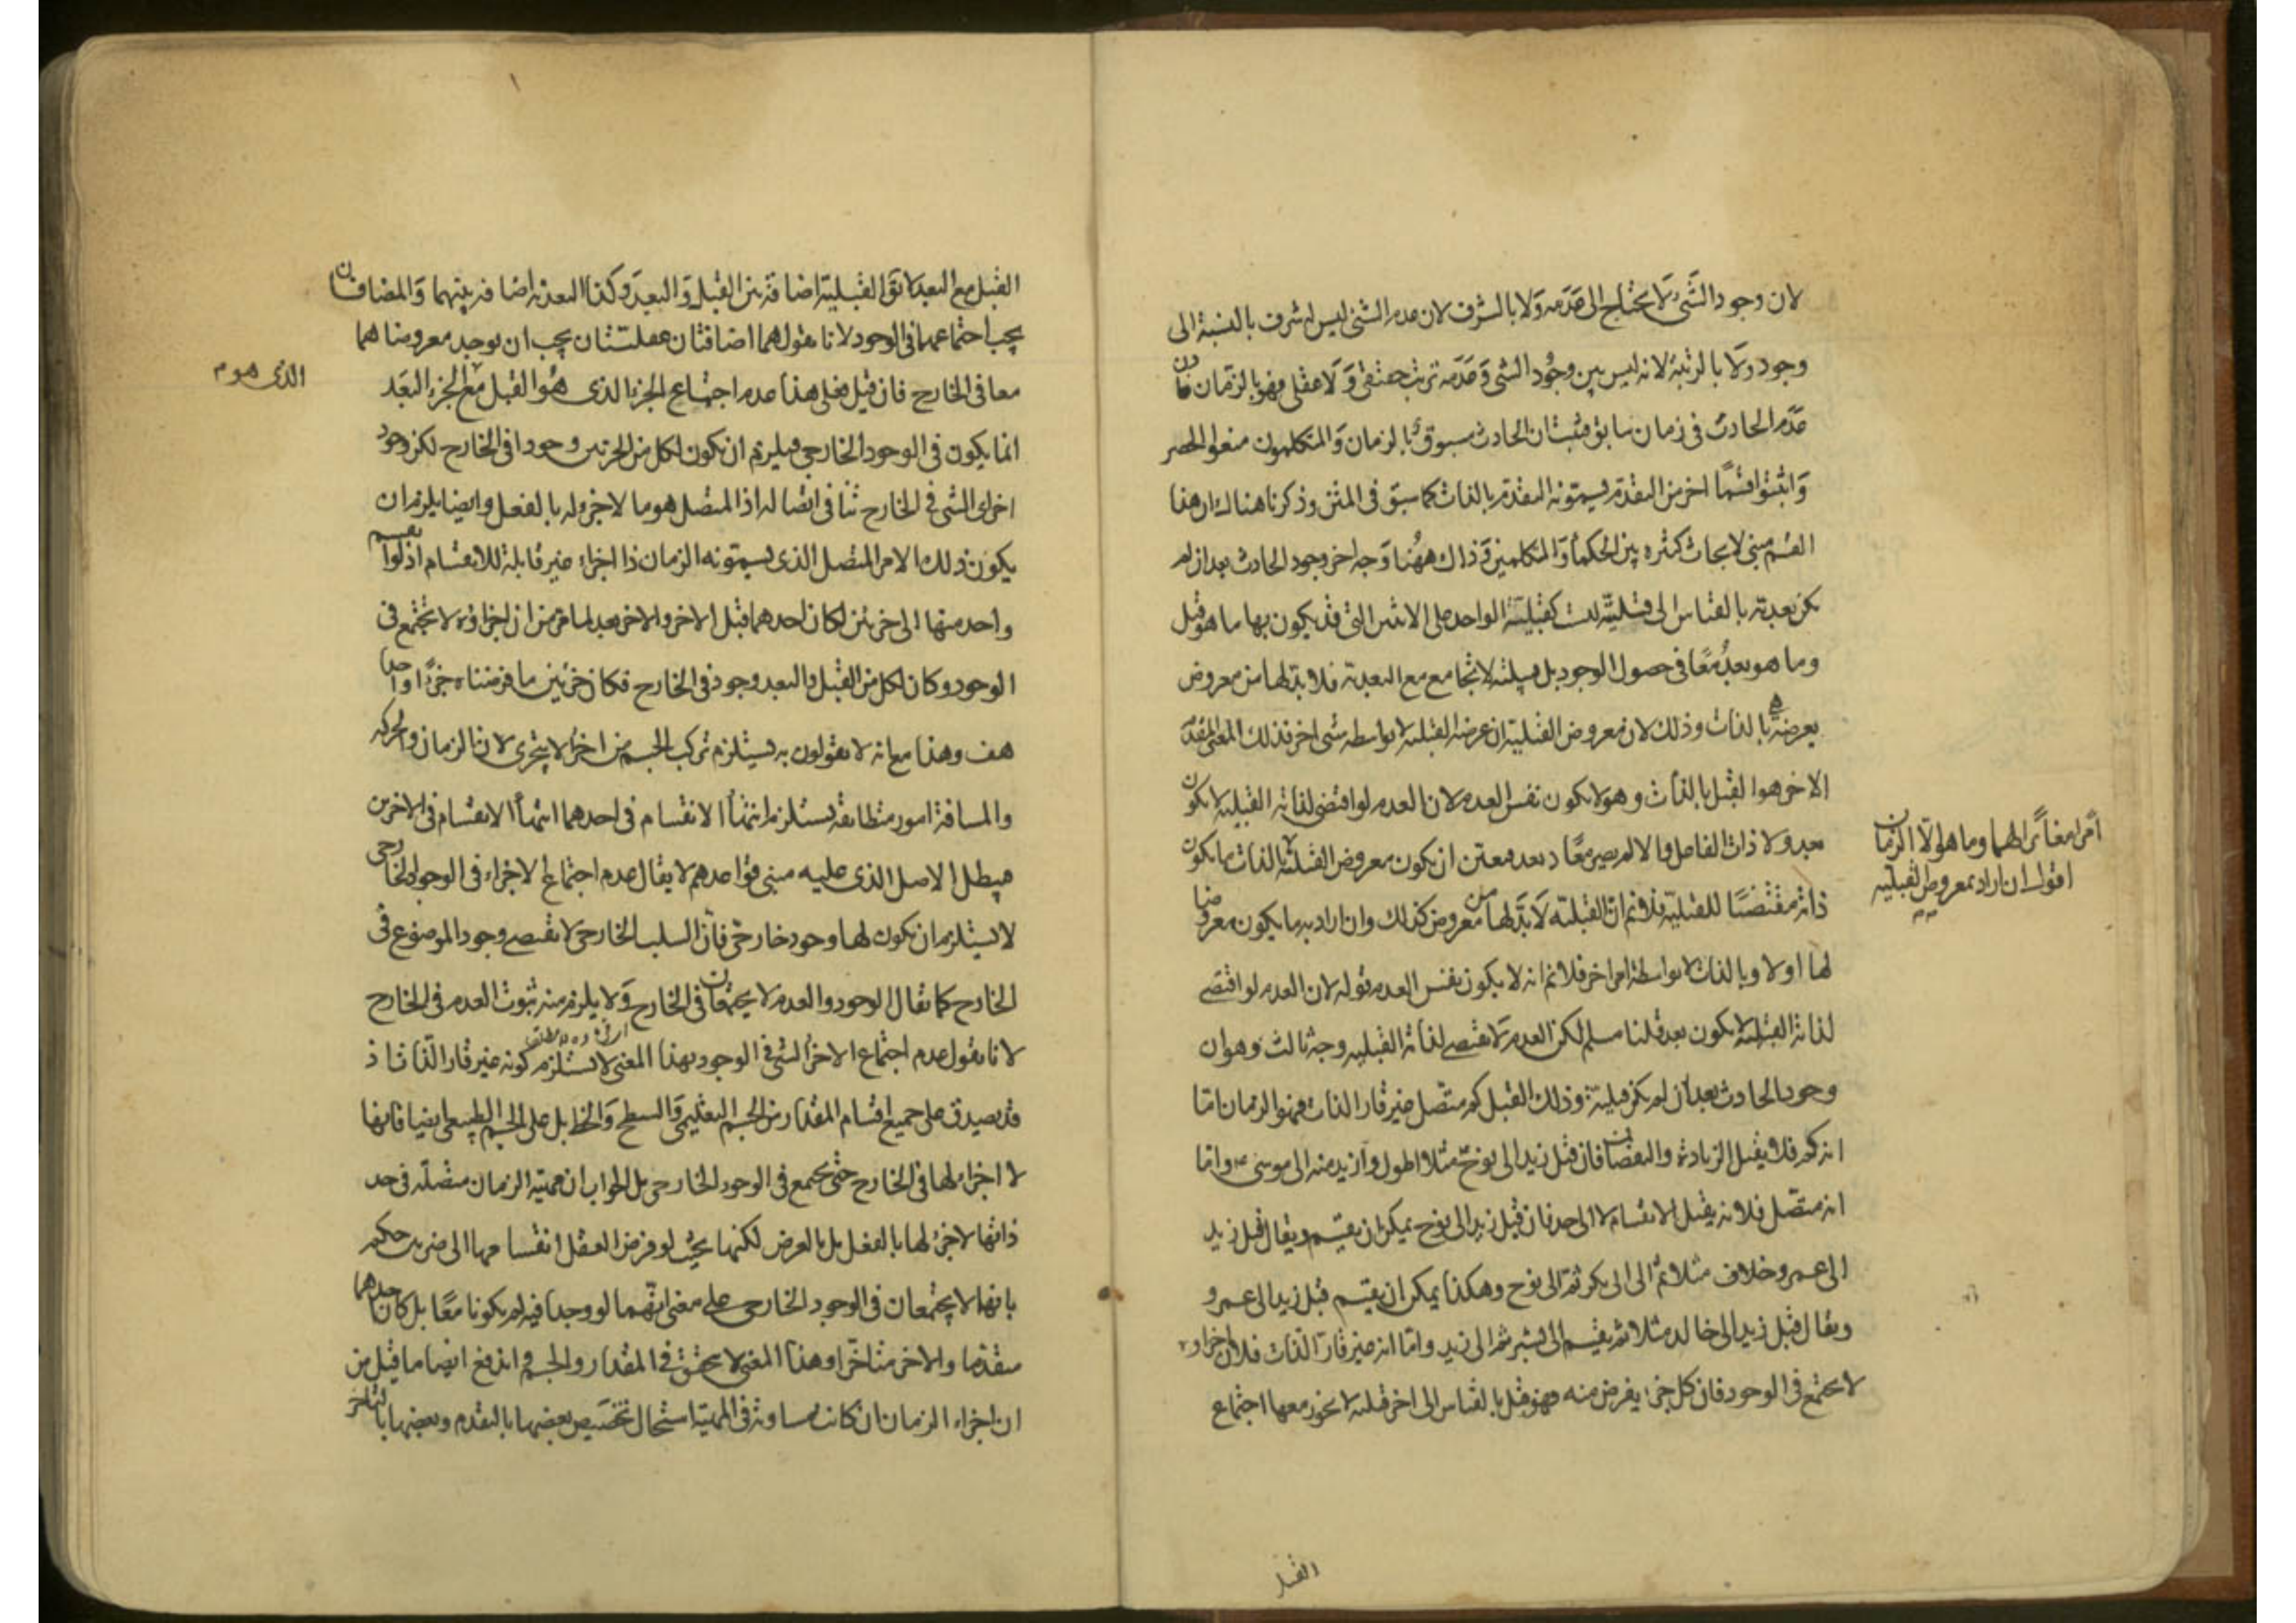 لان وجود الشئ لا يحتاج الى عدمه ولا بالشرف لان عدم الشئ ليس له شرف بالنسبة الى
وجوده ولا بالرتبة لانه ليس بين وجود الشى وعدمه ترتب حقيقى ولا عقلى فهو بالزمان فاذن
عدم الحادث فى زمان سابق فثبت ان الحادث مسبوق بالزمان والمتكلمون منعوا الحصر
واثبتوا قسمًا اخر من التقدم يسمونه التقدم بالذات كما سبق فى المتن وذكرنا هناك ان هذا
القسم مبنى لابحاث كثيره بين الحكماء والمتكلمين فذاك ههنا وجه اخر وجود الحادث بعد ان لم
يكن بعدية بالقياس الى قبلية ليست كقبلية الواحد على الاثنين التى قد يكون بها ما هو قبل
وما هو بعد معًا فى حصول الوجود بل قبلية لا تجامع مع البعدية فلا بد لها من معروض
يعرضه هى بالذات وذلك لان معروض القبلية ان عرضه القبلية لا بواسطه شى اخر فذلك المعنى
الاخر هو القبل بالذات وهو لا يكون نفس العدم لان العدم لو اقتضى لذاته القبلية لا يكون
بعد ولا ذات الفاعل والا لم يصر معًا وبعد فتعين ان يكون معروض القبلية بالذات ما يكون
امرا مغائرا لهما وما هو الا الزمان
اقول ان اراد بمعروض القبلية
ذاته مقتضيًا للقبلية فلا نم ان القبلية لا بد لها من معروض كذلك وان اراد به ما يكون معروضا
لها اولا وبالذات لا بواسطة امر اخر فلا نم انه لا يكون نفس العدم قوله لان العدم لو اقتضى
لذاته القبلية لا يكون بعد قلنا مسلم لكن العدم لا يقتضى لذاته القبلية وجه ثالث وهو ان
وجود الحادث بعد ان لم يكن قبلية وذلك القبل كم متصل غير قار الذات فهو الزمان اما
انه كم فلا يقبل الزيادة والنقصان فان قبل زيد الى نوح مثلا اطول وازيد منه الى موسى واما
انه متصل فلانه يقبل الانقسام لا الى حد فان قبل زيد الى نوح يمكن ان يقسم ويقال قبل زيد
الى عمرو خلاف مثلا ثم الى الى بكر ثم الى نوح وهكذا يمكن ان يقسم قبل زيد الى عمرو
ويقال قبل زيد الى خالد مثلا ثم يقسم الى بشر ثم الى زيد واما انه غير قار الذات فلان اجزاوه
لا يجتمع فى الوجود فان كل جزء يفرض منه فهو قبل بالقياس الى اخر قبليه لا يجوز معها اجتماع
القبل
القبل مع البعد لا يق القبلية اضافة بين القبل والبعد وكذا البعدية اضافة بينهما والمضافان
يجب اجتماعهما فى الوجود لانا نقول هما اضافتان عقليتان يجب ان يوجد معروضاهما
معا فى الخارج فان قيل فعلى هذا عدم اجتماع الجزء الذى هو القبل مع الجزء البعد
الذى هو م
انما يكون فى الوجود الخارجى فيلزم ان يكون لكل من الجزئين وجود فى الخارج لكن وجود
اجزاى الشى فى الخارج تنافى اتصاله اذ المتصل هو ما لا جزء له بالفعل وايضا يلزم ان
يكون ذلك الامر المتصل الذى يسمونه الزمان ذا اجزاء غير قابلة للانقسام اذ لو انقسم
واحد منها الى جزئين لكان احدهما قبل الاخر والاخر بعد لما فرض ان اجزاؤه لا تجتمع فى
الوجود وكان لكل من القبل والبعد وجود فى الخارج فكان جزئين ما فرضناه جزًا واحدا
هف وهذا مع انه لا يقولون به يستلزم تركب الجسم من اجزاء لا يتجزى لان الزمان والحركه
والمسافة امور متطابقة يستلزم انتهاء الانقسام فى احدهما انتهاء الانقسام فى الاخرين
فيبطل الاصل الذى عليه مبنى قواعدهم لا يقال عدم اجتماع الاجزاء فى الوجود الخارجى
لا يستلزم ان يكون لها وجود خارجى فان السلب الخارجى لا يقتضى وجود الموضوع فى
الخارج كما يقال الوجود والعدم لا يجتمعان فى الخارج ولا يلزم منه ثبوت العدم فى الخارج
لانا نقول عدم اجتماع الاجزاء الشى فى الوجود بهذا المعنى لا يستلزم كونه غير قار الذات اذ
قد يصدق على جميع اقسام المقدار من الجسم التعليمى والسطح والخط بل على الجسم الطبيعى ايضا فانها
لا اجزاء لها فى الخارج حتى يجتمع فى الوجود الخارجى بل الجواب ان مهية الزمان متصلة فى حد
ذاتها لا جزء لها بالفعل بل بالعرض لكنها بحيث لو فرض العقل انقسامها الى جزئين حكم
بانهما لا يجتمعان فى الوجود الخارجى على معنى انهما لو وجدا فيه لم يكونا معًا بل كان احدهما
متقدما والاخر متاخرا وهذا المعنى لا يتحقق فى المقدار والجسم اندفع ايضا ما قيل من
ان اجزاء الزمان ان كانت متساوية فى المهية استحال تخصيص بعضها بالتقدم وبعضها بالتاخر